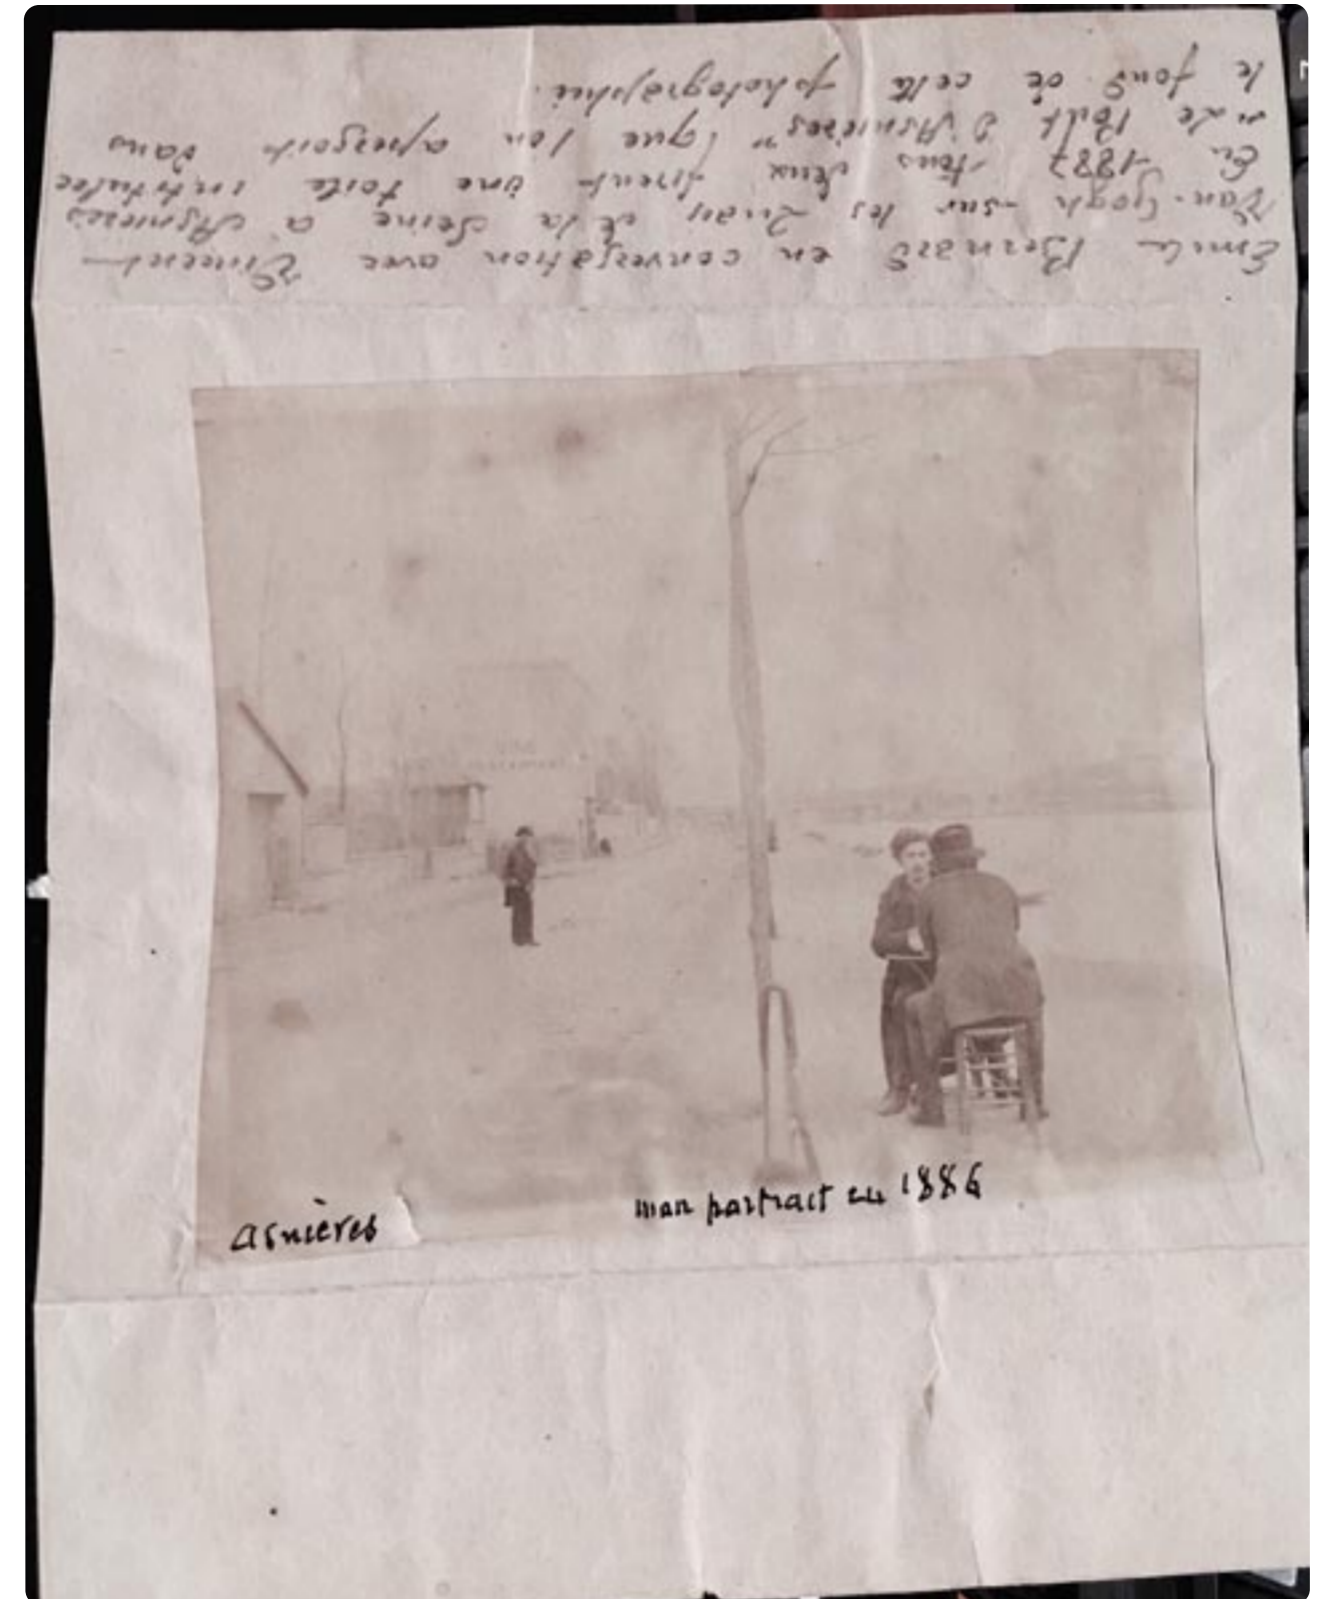 Emile Bernard en conversation avec Vincent
Van-Gogh sur les quais de la Seine à Asnières
En 1887 tous deux firent une toile intitulée
"Le Pont d'Asnières" (que l'on aperçoit dans
le fond de cette photographie.
RESTAURANT
Asnières
mon portrait en 1886